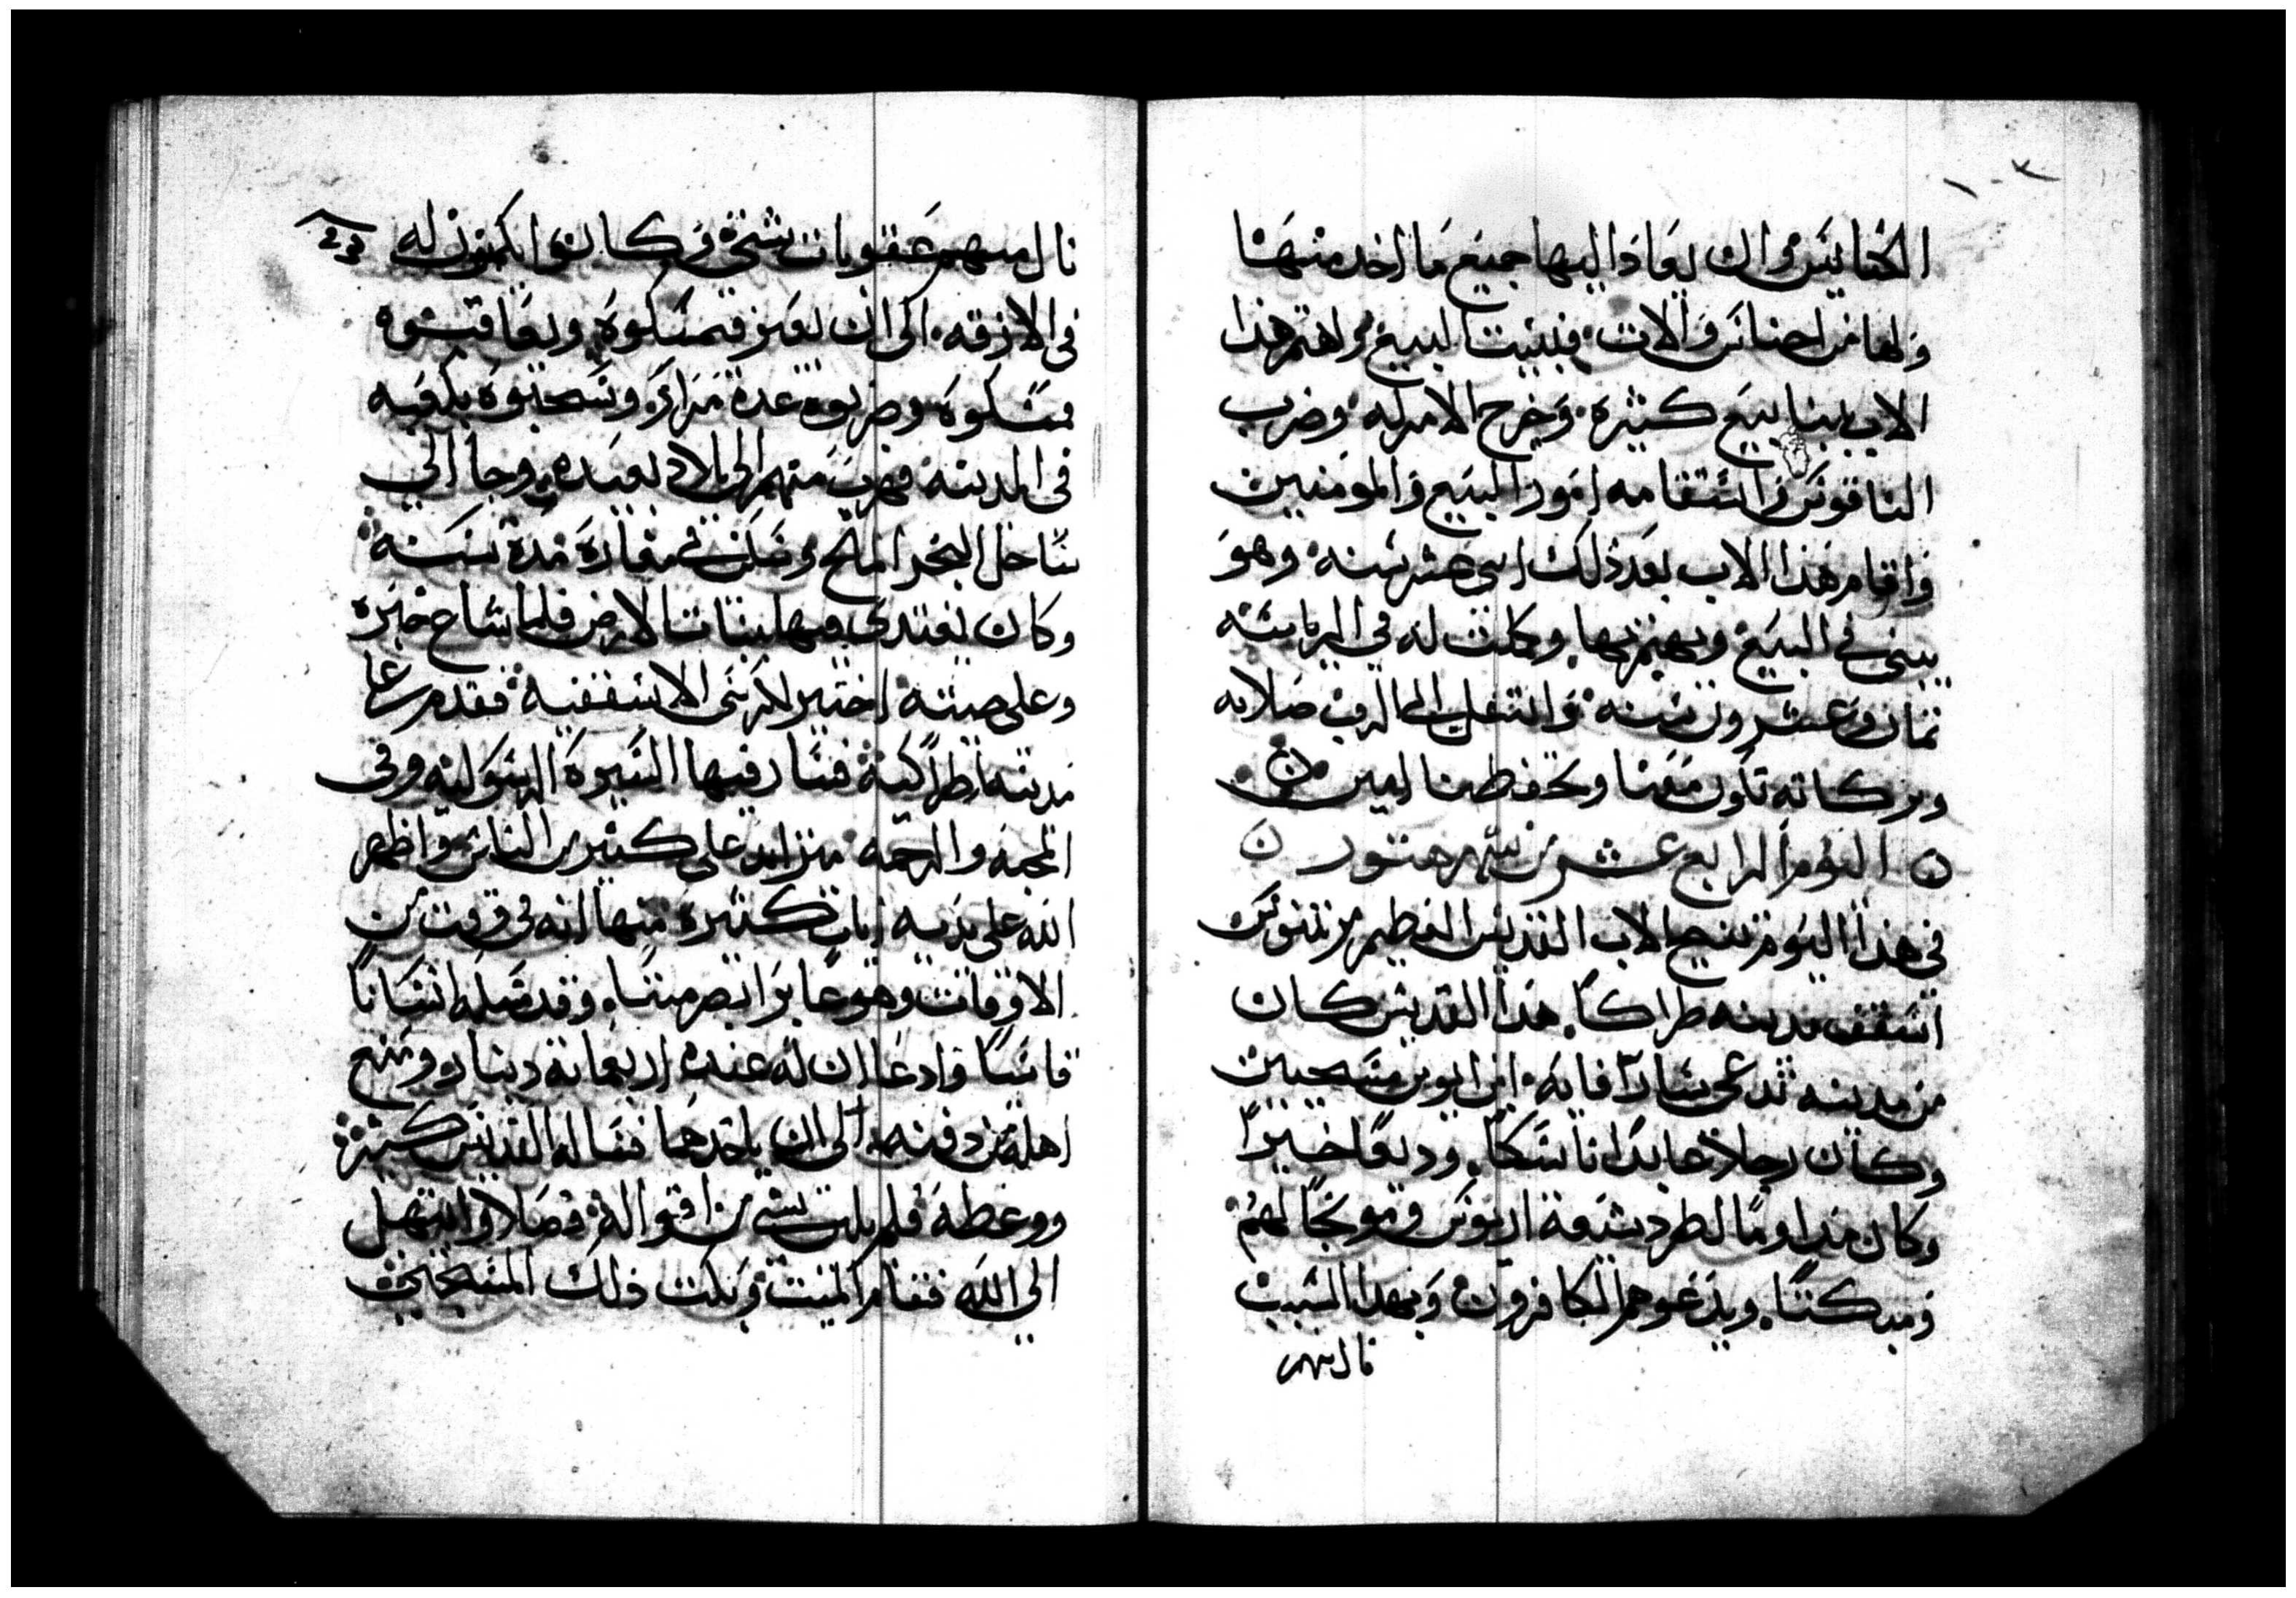 ١٠٣
الكنايس وان يعادا اليها جميع ما اخد منها
ولها من احناس والات فبنيت البيع واهتم هدا
الاب ببنا بيع كثيرة وخرج الامر له وضرب
الناقوس واستقامه امور البيع والمومنين
واقام هذا الاب بعد ذلك اتني عشر سنه وهو
يبني في البيع ويهتم بها وكملت له في الرياسه
تمان وعشرون سنه وانتقل الى الرب صلاته
وبركاته تكون معنا وتحفظنا امين
اليوم الرابع عشر من شهر هتور
في هذا اليوم تنيح الاب القديس العظيم مرتينوس
اسقف مدينه طراكا هذا القديس كان
من مدينه تدعى سارافايه ابن ابوين مسيحيين
وكان رجلا عابدا ناسكا وديعا خيرا
وكان مداوما لطرد شيعة اريوس وموبخا لهم
ومبكتا ويدعوهم الكافرون وبهدا السبب
نال منهم
نال منهم عقوبات شتى وكانوا يكمنون له
في الازقه الى ان يعبر فيمسكوه ويعاقبوه
فمسكوه وضربوه عدة مرار وسحبوه برجليه
في المدينه فهرب منهم الى بلاد بعيده وجا الى
ساحل البحر المالح وسكن في مغارة مدة سنه
وكان يغتدي فيها بنبات الارض فلما شاع خبره
وعلى صيته اختير لكرسي الاسقفيه فقدم راعيا
مدينه اطراكيه فسار فيها السيرة الرسوليه وفي
المحبه والرحمه متزايد على كثير من الناس واظهر
الله على يديه ايات كثيرة منها انه في وقت من
الاوقات وهو عابرا ابصر ميتا وقد مسكه انسانا
قاسيا وادعا ان له عنده اربعماية دينار ومنع
اهله من دفنه الى ان ياخدها فقال له القديس كثيرا
ووعظه فلم يلتفت بشي من اقواله فصلا وابتهل
الى الله فقام الميت وبكت ذلك المسيحي